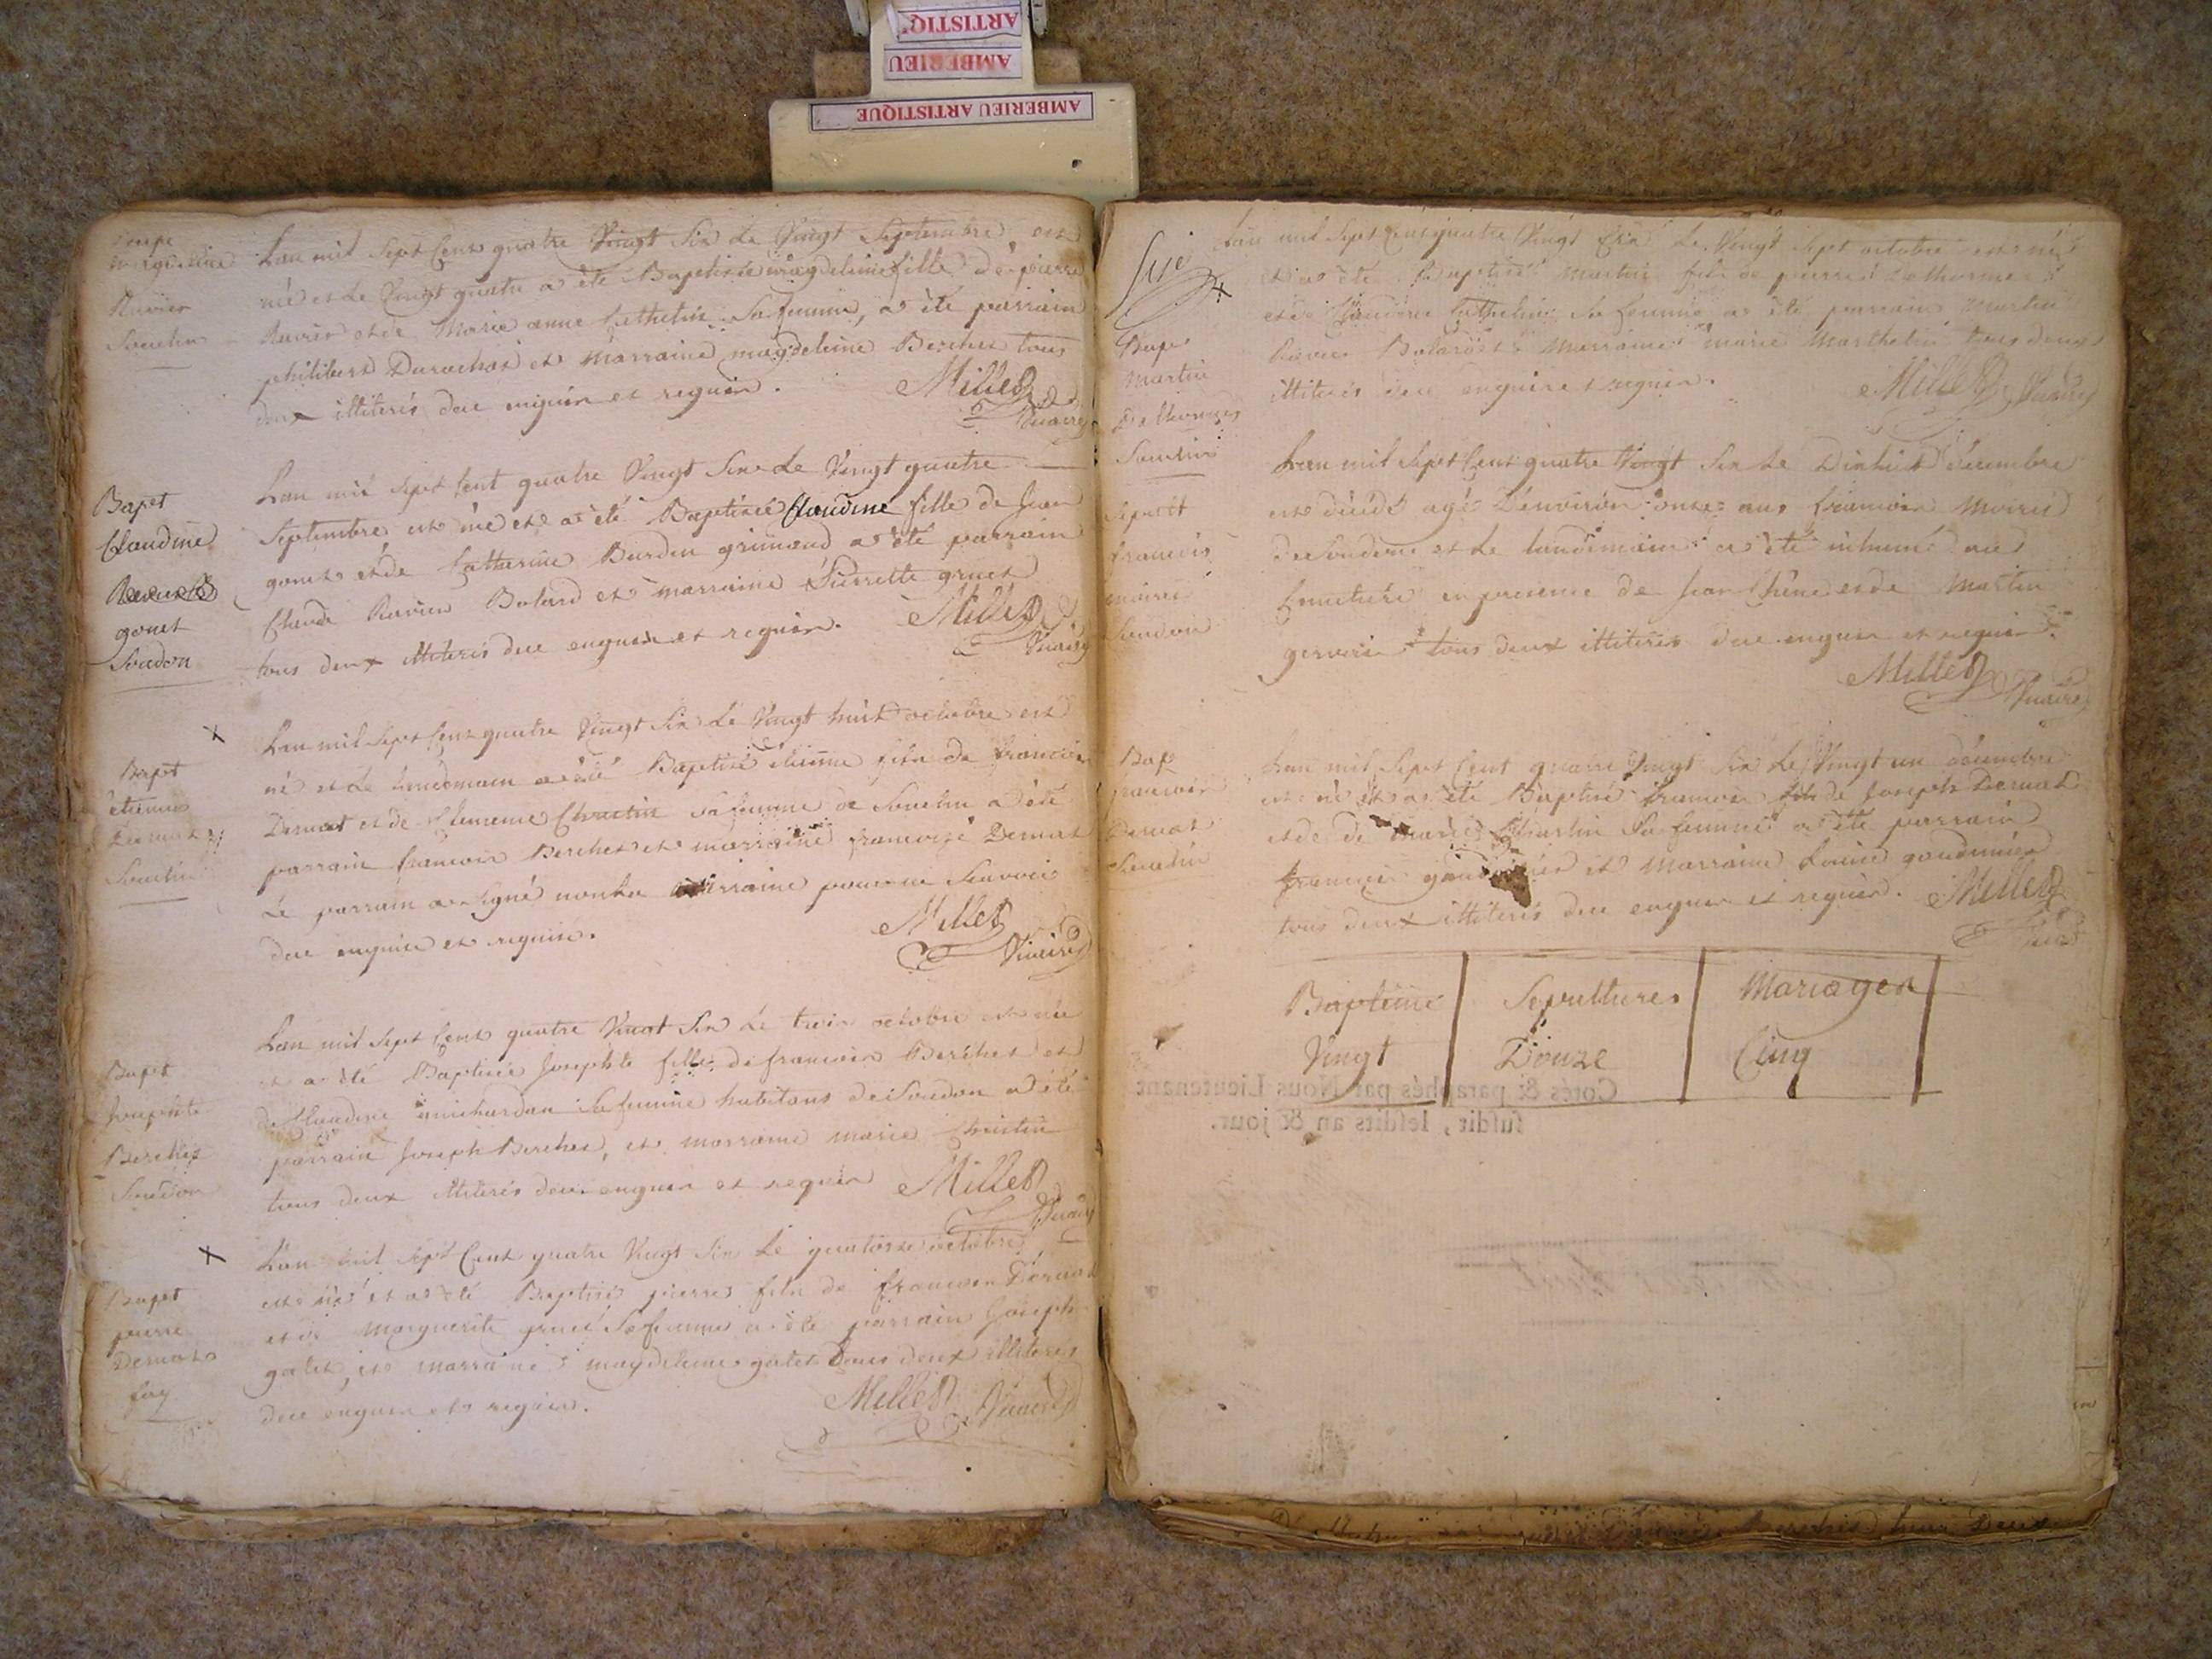 ARTISTIQ'
AMBERIEU
AMBERIEU ARTISTIQUE
magdeleine
Ravier
Soudon
Lan mil sept Cent quatre Vingt Six Le Vingt Septembre est
né et Le Vingt quatre a été Baptisée magdeleine fille de pierre
Ravier et de Marie anne Cathelin Sa femme, a été parrain
philibert Durochat et Marraine magdeleine Berchet tous
deux illiterés de ce enquis et requis.
Millet
Vicaire
Bapt
Claudine
gonet
Soudon
Lan mil sept Cent quatre Vingt Six Le Vingt quatre
Septembre est née et a été Baptisée Claudine fille de Jean
gonet et de Catherine Burdin grimaud a été parrain
Claude Ravier Bolard et marraine Pierrette gruet
tous deux illiterés de ce enquis et requis.
Millet
Vicaire
Bapt
étienne
Dernat
Soudon
Lan mil Sept Cent quatre Vingt Six Le Vingt huit octobre est
né et Le Lendemain a été Baptisé étienne fils de francois
Dernat et de Clemence Christin sa femme de Soudon a été
parrain francois Berchet et marraine francoise Dernat
Le parrain a Signé non La marraine pour ne Scavoir
de ce enquise et requise.
Millet
Vicaire
Bapt
Josephte
Berchet
Soudon
Lan mil Sept Cent quatre Vingt Six Le trois octobre est née
et a été Baptisée Josephte fille de francois Berchet et
de Claudine michardan Sa femme habitans de Soudon a été
parrain Joseph Berchet, et marraine marie Christin
tous deux illiterés de ce enquis et requis
Millet
Vicaire
Bapt
pierre
Dernat
Lan mil Sept Cent quatre Vingt Six Le quatorze octobre
est né et a été Baptisé pierre fils de francois Dernat
et de Marguerite gruet Sa femme a été parrain Joseph
galet, et marraine magdeleine galet tous deux illiterés
de ce enquis et requis.
Millet Vicaire
Bapt
Martin
Delhorme
Soudon
Lan mil Sept Cent quatre Vingt Six Le Vingt Sept octobre est né
et a été Baptisé Martin fils de pierre Delhorme
et de Claudine Cathelin Sa femme a été parrain Martin
Ravier Bolard et Marraine marie Marthelin tous deux
illiterés de ce enquis et requis.
Millet Vicaire
Sepult
francois
moiret
Soudon
Lan mil Sept Cent quatre Vingt Six Le Dixhuit décembre
est décédé agé D'environ onze ans francois Moiret
de Soudon et Le Landemain a été inhumé au
Cimetiere en presence de Jean Chêne et de Martin
tous deux illiterés de ce enquis et requis.
Millet
Vicaire
Bapt
francois
Dernat
Soudon
Lan mil Sept Cent quatre Vingt Six Le Vingt un décembre
est né et a été Baptisé francois fils de Joseph Dernat
et de de marie Christin Sa femme a été parrain
francois et Marraine Louise goudinier
tous deux illiterés de ce enquis et requis. Millet
Vicaire
Baptême Sepultures Mariages
Vingt Douze Cinq
Cotés & paraphés par Nous Lieutenant
susdit, lesdits an & jour.